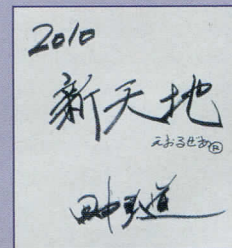 2010
新天地
えおるせあ®
田中美道